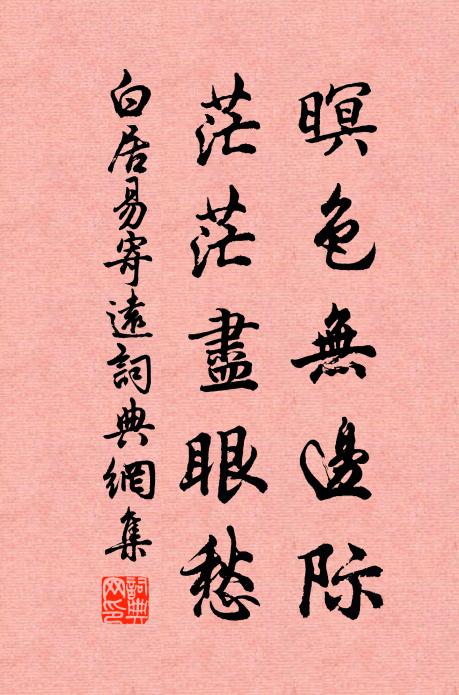 暝色無邊際
茫茫盡眼愁
白居易寄遠詞典網集
詞典網印